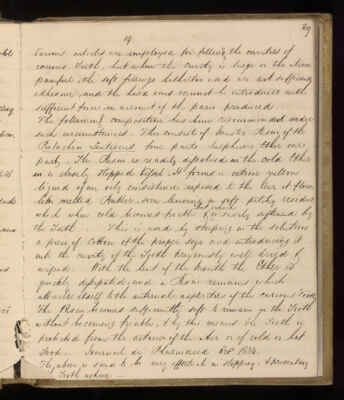 19
29
Various articles are employed for filling the cavities of
carious teeth, but when the cavity is large or the Nerve
painful the soft fillings hitherto used are not sufficiently
adhesive, and the hard ones cannot be introduced with
sufficient force on account of the pain produced
The following composition has been recommended under
such circumstances. This consists of Mastic Resin of the
Pistachia Lentiscus four parts. Sulphuric Ether one
part. The Resin is readily dissolved in the cold Ether
in a closely stopped bottle. It forms a citron yellow
liquid of an oily consistence exposed to the Air it flows
like melted Amber, soon leaving a soft pitchy residue
which when cold becomes brittle but is easily softened by
the Teeth. This is used by steeping in the solution
a piece of Cotton of the proper size and introducing it
into the cavity of the Tooth previously well dried &
wiped. With the heat of the mouth the Ether is
quickly dissipated, and a Resin remains which
attaches itself to the internal asperities of the carious Tooth
The Resin becomes sufficiently soft to remain in the Tooth
without becoming friable, & by this means the Tooth is
protected from the action of the Air or of cold or hot
Food. Journal de Pharmacie 1834.
The above is said to be very effectual in stopping & preventing
Tooth ache